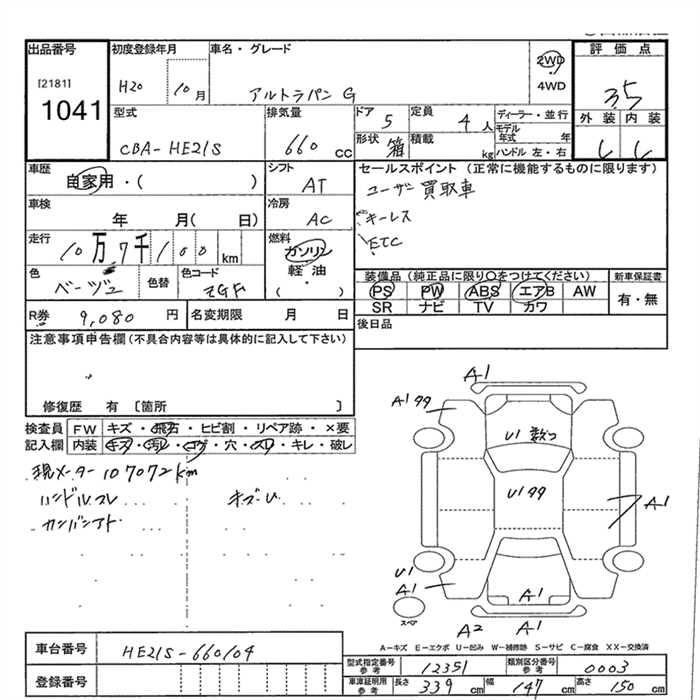 出品番号
[2181]
1041
初度登録年月
H20 10月
車名・グレード
アルトラパン G
2WD
4WD
評価点
3.5
外装 内装
型式
CBA-HE21S
排気量
660 CC
ドア 5
定員 4人
形状 箱
積載 kg
ディーラー・並行
モデル年式 年
ハンドル 左・右
車歴
自家用・( )
シフト
AT
車検
年 月( 日)
冷房
AC
走行
10万7千100km
燃料
ガソリン
軽油
・
( )
色
ベージュ
色替
色コード
ZGF
セールスポイント (正常に機能するものに限ります)
ユーザー買取車
キーレス
ETC
装備品 (純正品に限り○をつけてください)
PS PW ABS エアB AW
SR ナビ TV カワ
新車保証書
有・無
後日品
R券 9,080 円
名変期限 月 日
注意事項申告欄 (不具合内容等は具体的に記入して下さい)
修復歴 有 〔箇所 〕
検査員記入欄
FW キズ・飛石・ヒビ割・リペア跡・×要
内装 キズ・汚レ・コゲ・穴・スレ・キレ・破レ
現メーター107072km
ハンドルスレ キズU
A1
A1 99
U1 数つ
U1 99
A1
U1
A1
A1 A1
スペア
A2 A1
A-キズ E-エクボ U-凹み W-補修跡 S-サビ C-腐食 XX-交換済
車台番号
HE21S-660104
登録番号
型式指定番号 参考 12351
類別区分番号 参考 0003
車庫証明用 参考 長さ 339 cm 幅 147 cm 高さ 150 cm